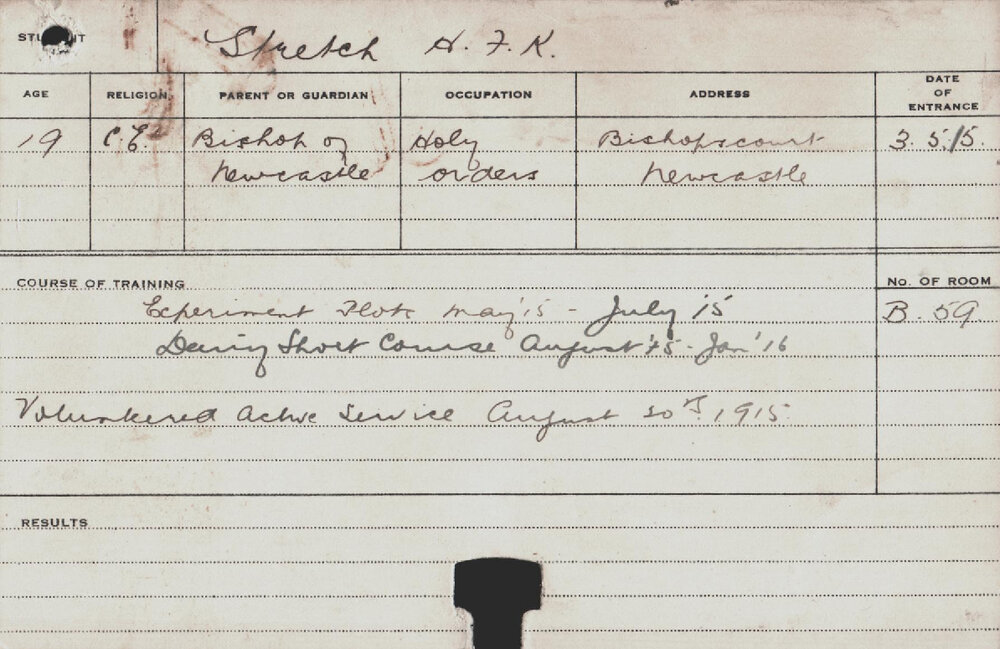 STUDENT Stretch H. F. K.
AGE RELIGION PARENT OR GUARDIAN OCCUPATION ADDRESS DATE OF ENTRANCE
19 C.E. Bishop of Holy Bishopscourt 3.5.15.
Newcastle orders Newcastle
COURSE OF TRAINING No. OF ROOM
Experiment Plots May '15 - July '15 B. 59
Dairy Short Course August '15 - Jan '16
Volunteered Active Service August 1915.
RESULTS